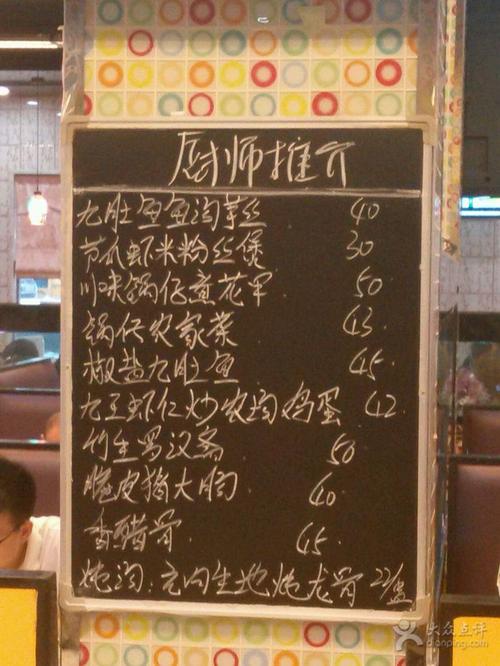 厨师推介
九肚鱼鱼汤芋丝 40
节瓜虾米粉丝煲 30
川味锅仔煮花甲 50
锅仔农家菜 43
椒盐九肚鱼 45
九王虾仁炒农场鸡蛋 42
竹生罗汉斋 50
脆皮猪大肠 40
香醋骨 45
炖汤:元肉生地炖龙骨 22/盅
大众点评
dianping.com